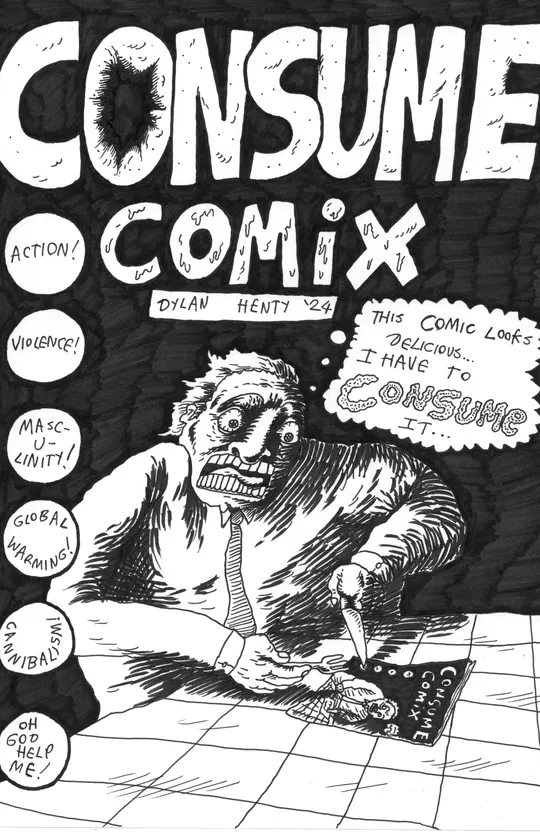 CONSUME
COMiX
DYLAN HENTY '24
ACTION!
VIOLENCE!
MASC-
U-
LINITY!
GLOBAL
WARMING!
CANNIBALISM!
OH
GOD
HELP
ME!
THIS COMIC LOOKS
DELICIOUS...
I HAVE TO
CONSUME
IT...
CONSUME
COMiX